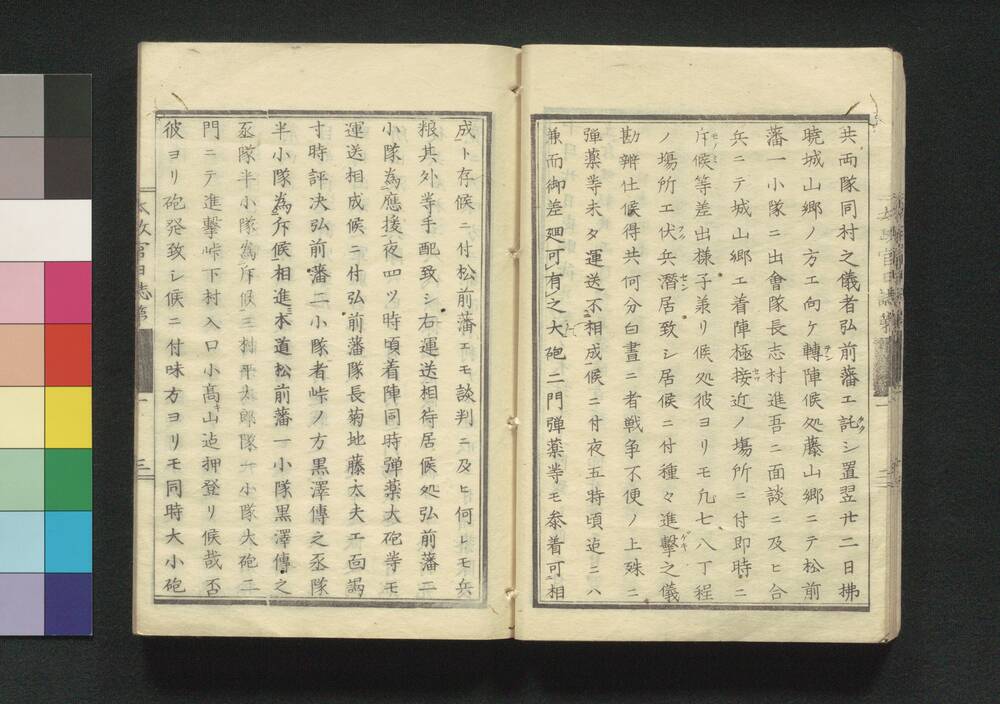 共両隊同村之儀者弘前藩エ託シ置翌廿二日拂
暁城山郷ノ方エ向ケ轉陣候処藤山郷ニテ松前
藩一小隊ニ出會隊長志村進吾ニ面談ニ及ヒ合
兵ニテ城山郷エ着陣極接近ノ塲所ニ付即時ニ
斥候等差出様子兼リ候処彼ヨリモ凢七八丁程
ノ塲所エ伏兵潜居致シ居候ニ付種々進擊之儀
勘辨仕候得共何分白晝ニ者戦争不便ノ上殊ニ
弾薬等未タ運送不相成候ニ付夜五時頃迠ニハ
兼而御差廻可有之大砲二門弾薬等モ參着可相
成ト存候ニ付松前藩エモ談判ニ及ヒ何レモ兵
粮其外等手配致シ右運送相待居候処弘前藩二
小隊為應援夜四ツ時頃着陣同時弾薬大砲等モ
運送相成候ニ付弘前藩隊長菊地藤太夫エ面謁
寸時評决弘前藩二小隊者峠ノ方黒澤傳之丞隊
半小隊為斥候相進本道松前藩一小隊黒澤傳之
丞隊半小隊為斥候三村平太郎隊一小隊大砲二
門ニテ進擊峠下村入口小髙山迠押登リ候哉否
彼ヨリ砲発致シ候ニ付味方ヨリモ同時大小砲